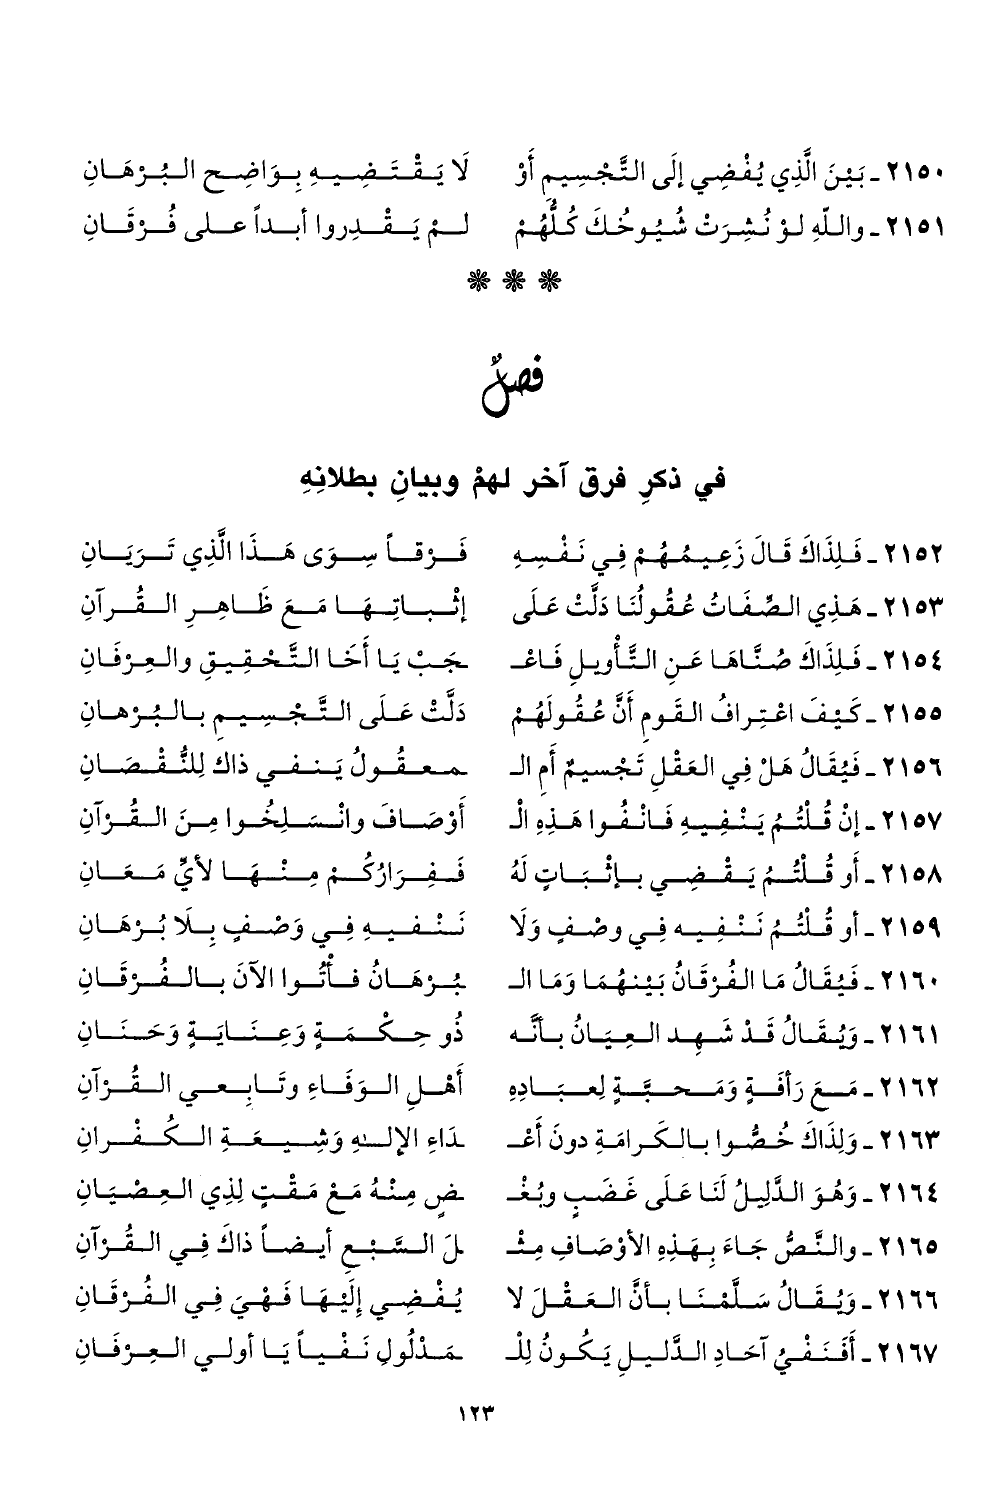 ٢١٥٠ ـ بَيْنَ الَّذِي يُفْضِي إلَى التَّجْسِيمِ أَوْ لَا يَقْتَضِيهِ بِوَاضِحِ البُرْهَانِ
٢١٥١ ـ واللّهِ لَوْ نُشِرَتْ شُيُوخُكَ كُلُّهُمْ لَمْ يَقْدِروا أبداً على فُرْقَانِ
❋ ❋ ❋
فصلٌ
في ذكرِ فرق آخر لهمْ وبيانِ بطلانِهِ
٢١٥٢ ـ فَلِذَاكَ قَالَ زَعِيمُهُمْ فِي نَفْسِهِ فَرْقاً سِوَى هَذَا الَّذِي تَرَيَانِ
٢١٥٣ ـ هَذِي الصِّفَاتُ عُقُولُنَا دَلَّتْ عَلَى إثْبَاتِهَا مَعَ ظَاهِرِ القُرآنِ
٢١٥٤ ـ فَلِذَاكَ صُنَّاهَا عَنِ التَّأْوِيلِ فَاعْـ ـجَبْ يَا أَخَا التَّحْقِيقِ والعِرْفَانِ
٢١٥٥ ـ كَيْفَ اعْتِرافُ القَومِ أنَّ عُقُولَهُمْ دَلَّتْ عَلَى التَّجْسِيمِ بالبُرْهانِ
٢١٥٦ ـ فَيُقَالُ هَلْ فِي العَقْلِ تَجْسيمٌ أمِ الـ ـمعقُولُ يَنفي ذاكَ لِلنُّقْصَانِ
٢١٥٧ ـ إنْ قُلْتُمُ يَنْفِيهِ فَانْفُوا هَذِهِ الْـ أَوْصَافَ وانْسَلِخُوا مِنَ القُرْآنِ
٢١٥٨ ـ أَو قُلْتُمُ يَقْضِي بإثْبَاتٍ لَهُ فَفِرَارُكُمْ مِنْهَا لأيِّ مَعَانِ
٢١٥٩ ـ أو قُلْتُمُ نَنْفِيهِ فِي وصْفٍ وَلَا نَنْفيهِ فِي وَصْفٍ بِلَا بُرْهَانِ
٢١٦٠ ـ فَيُقَالُ مَا الفُرْقَانُ بَيْنهُمَا وَمَا الـ ـبُرْهَانُ فأْتُوا الآنَ بالفُرْقَانِ
٢١٦١ ـ وَيُقَالُ قَدْ شَهِد العِيَانُ بأنَّه ذُو حِكْمَةٍ وَعِنَايَةٍ وَحَنَانِ
٢١٦٢ ـ مَعَ رَأفَةٍ وَمَحبَّةٍ لِعبَادِهِ أَهْلِ الوَفَاءِ وتَابِعي القُرآنِ
٢١٦٣ ـ وَلِذَاكَ خُصُّوا بالكَرامَةِ دونَ أَعْـ ـدَاءِ الإلـٰهِ وَشِيعَةِ الكُفْرانِ
٢١٦٤ ـ وَهُوَ الدَّلِيلُ لَنَا عَلَى غَضَبٍ وبُغْـ ـضٍ مِنْهُ مَعْ مَقْتٍ لِذِي العِصْيَانِ
٢١٦٥ ـ والنَّصُّ جَاءَ بِهَذِهِ الأوْصَافِ مِثْـ ـلَ السَّبْعِ أيضاً ذاكَ فِي القُرْآنِ
٢١٦٦ ـ وَيُقَالُ سَلَّمْنَا بأنَّ العَقْلَ لا يُفْضِي إلَيْهَا فَهْيَ فِي الفُرْقَانِ
٢١٦٧ ـ أَفَنَفْيُ آحَادِ الدَّليلِ يَكُونُ لِلْـ ـمَدْلُولِ نَفْياً يَا أولي العِرْفَانِ
١٢٣